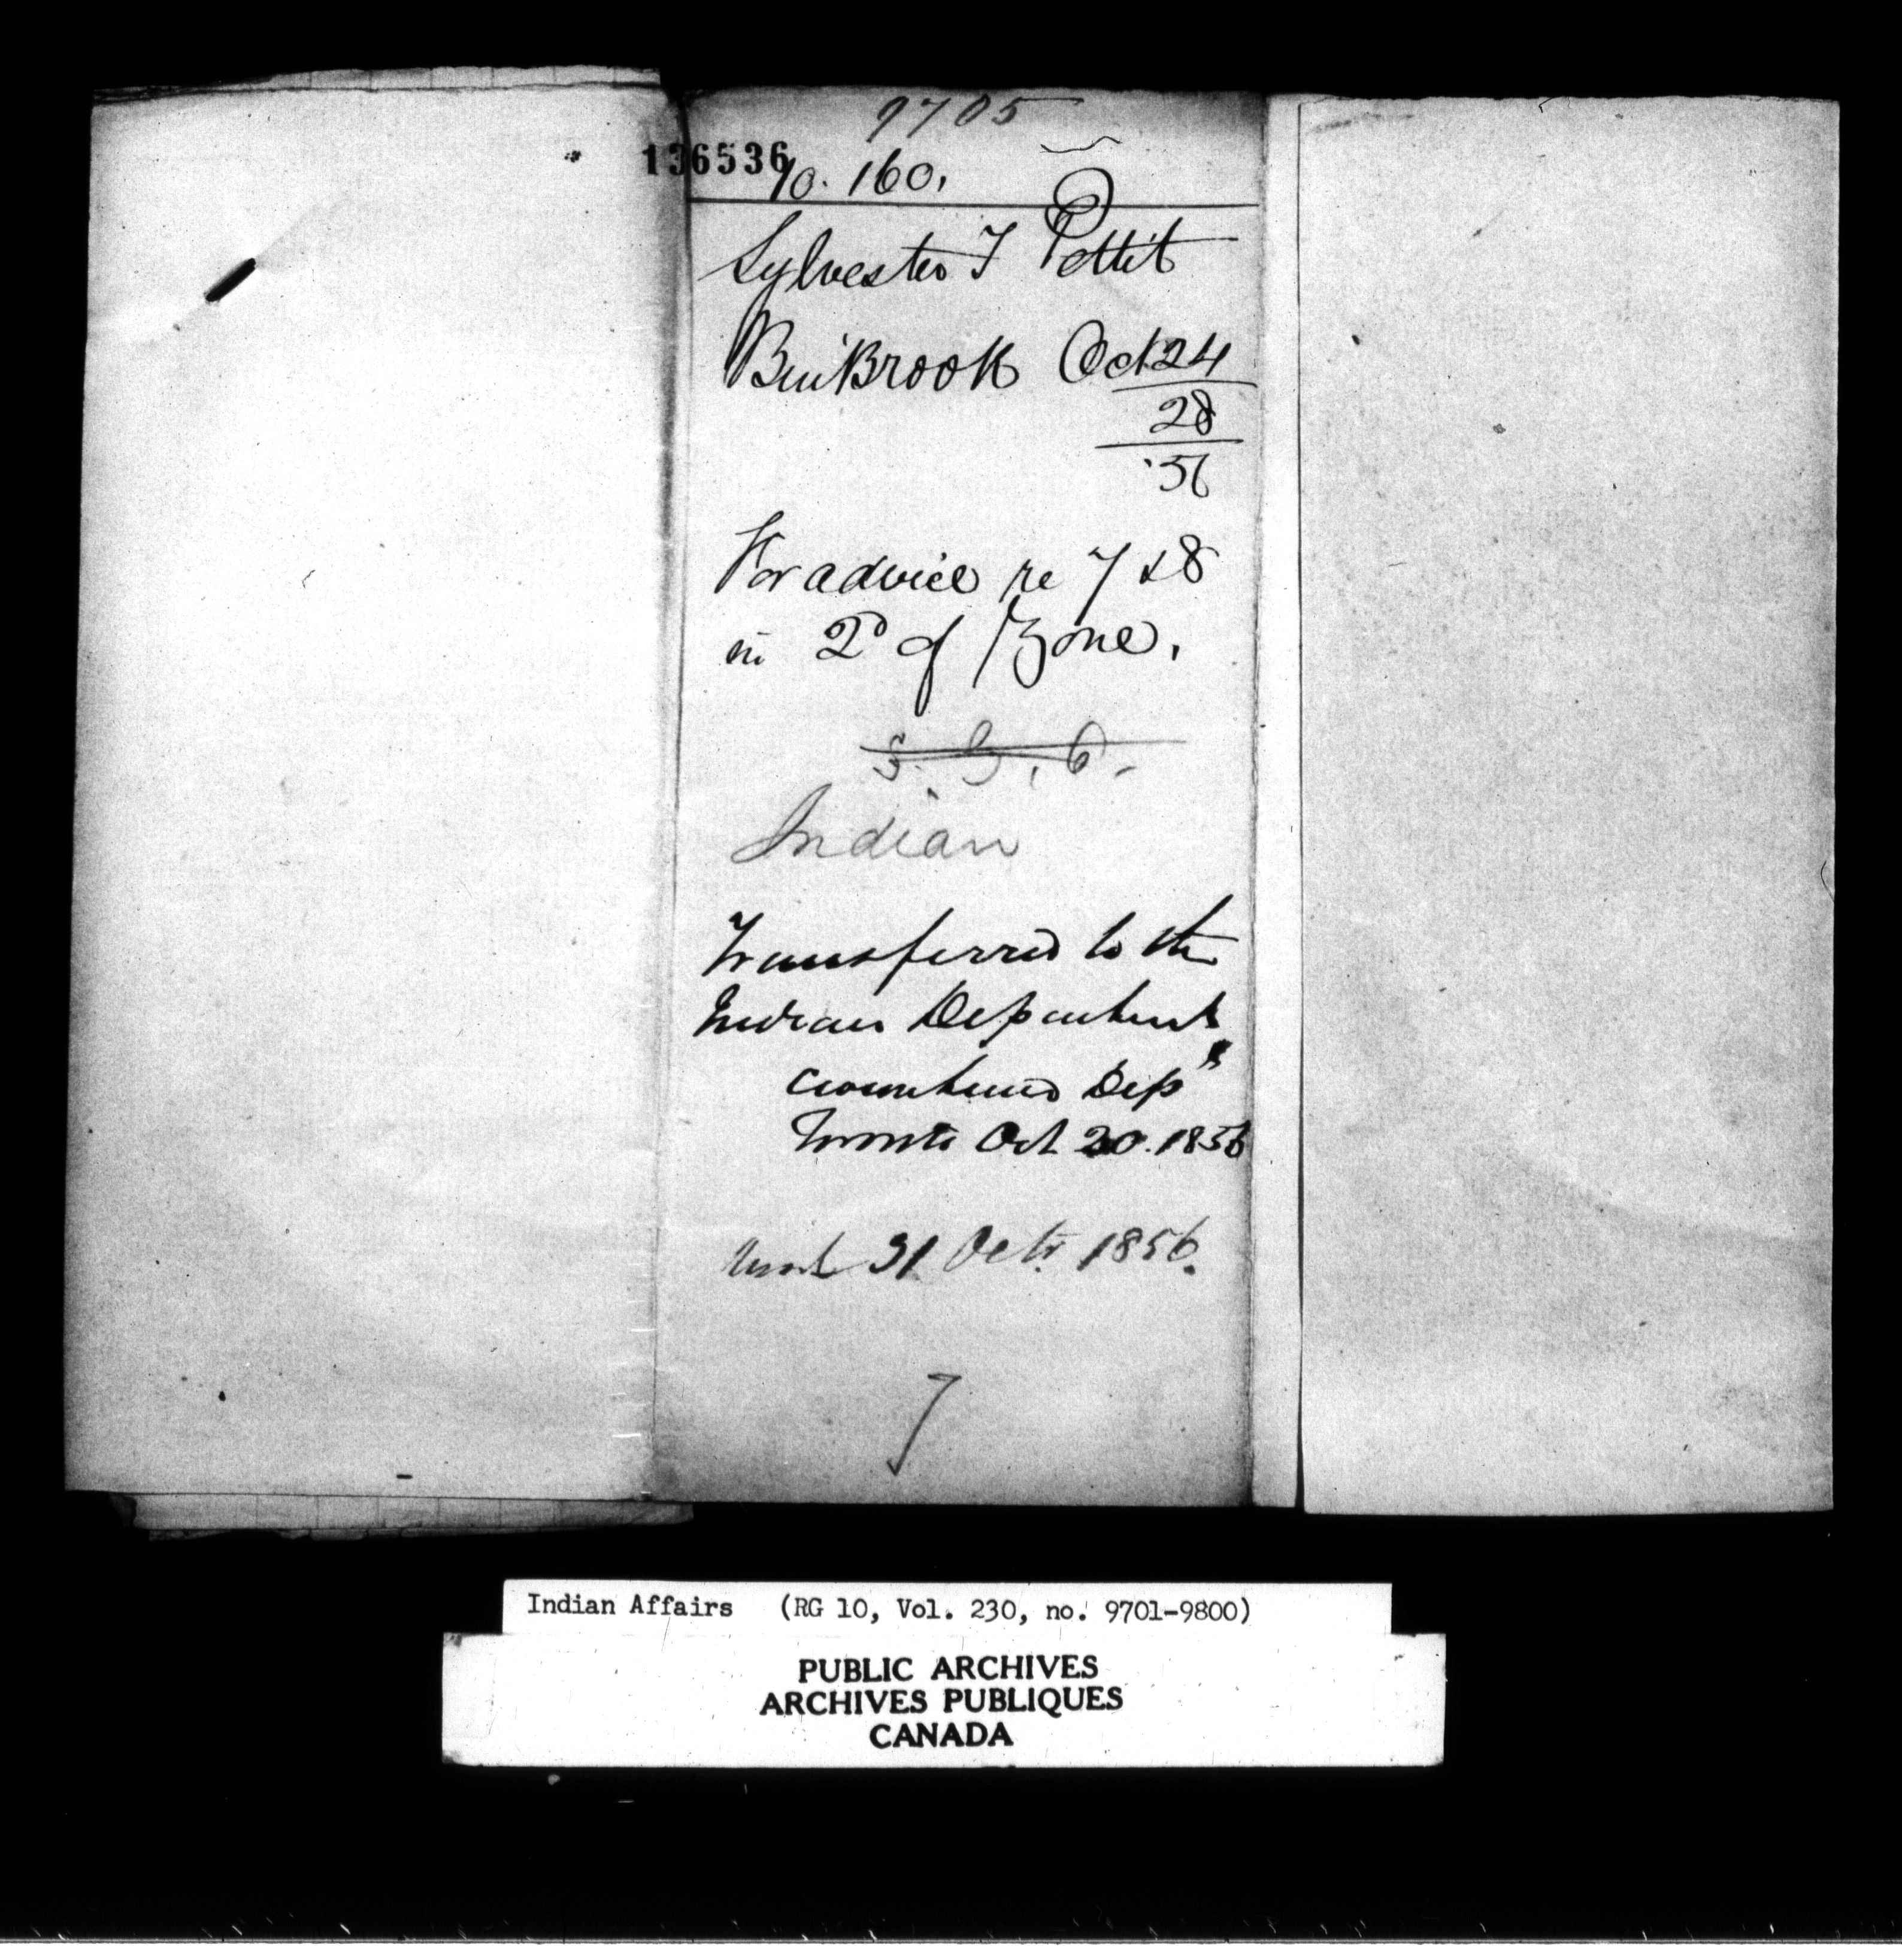 9705
136536
10.160.
Sylvester T Pettit
BinBrook Oct 24
28
56
For advice re 7 & 8
in 2D of Zone.
Indian
Transferred to the
Indian Department
Crown Land Dept
Toronto Oct 30. 1856
31 Octr. 1856.
7
Indian Affairs (RG 10, Vol. 230, no. 9701-9800)
PUBLIC ARCHIVES
ARCHIVES PUBLIQUES
CANADA